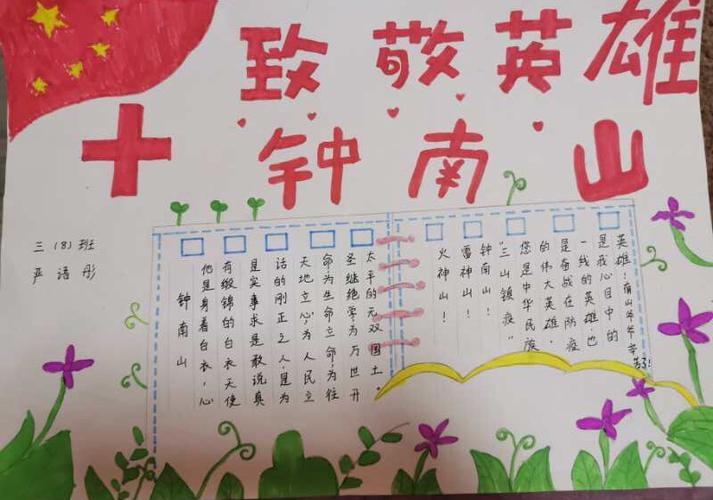 致敬英雄
钟南山
三（8）班
严 彤
钟南山
他是身着白衣，心
有缎锦的白衣天使
是实事求是敢说真
话的刚正之人，是为
天地立心，为人民立
命，为生命立命，为往
圣继绝学，为万世开
太平的无双国士。
火神山！
雷神山！
钟南山！
“三山镇疫”
您是中华民族
的伟大英雄。
是奋战在防疫
一线的英雄，也
是我心目中的
英雄！南山爷爷辛
苦了！